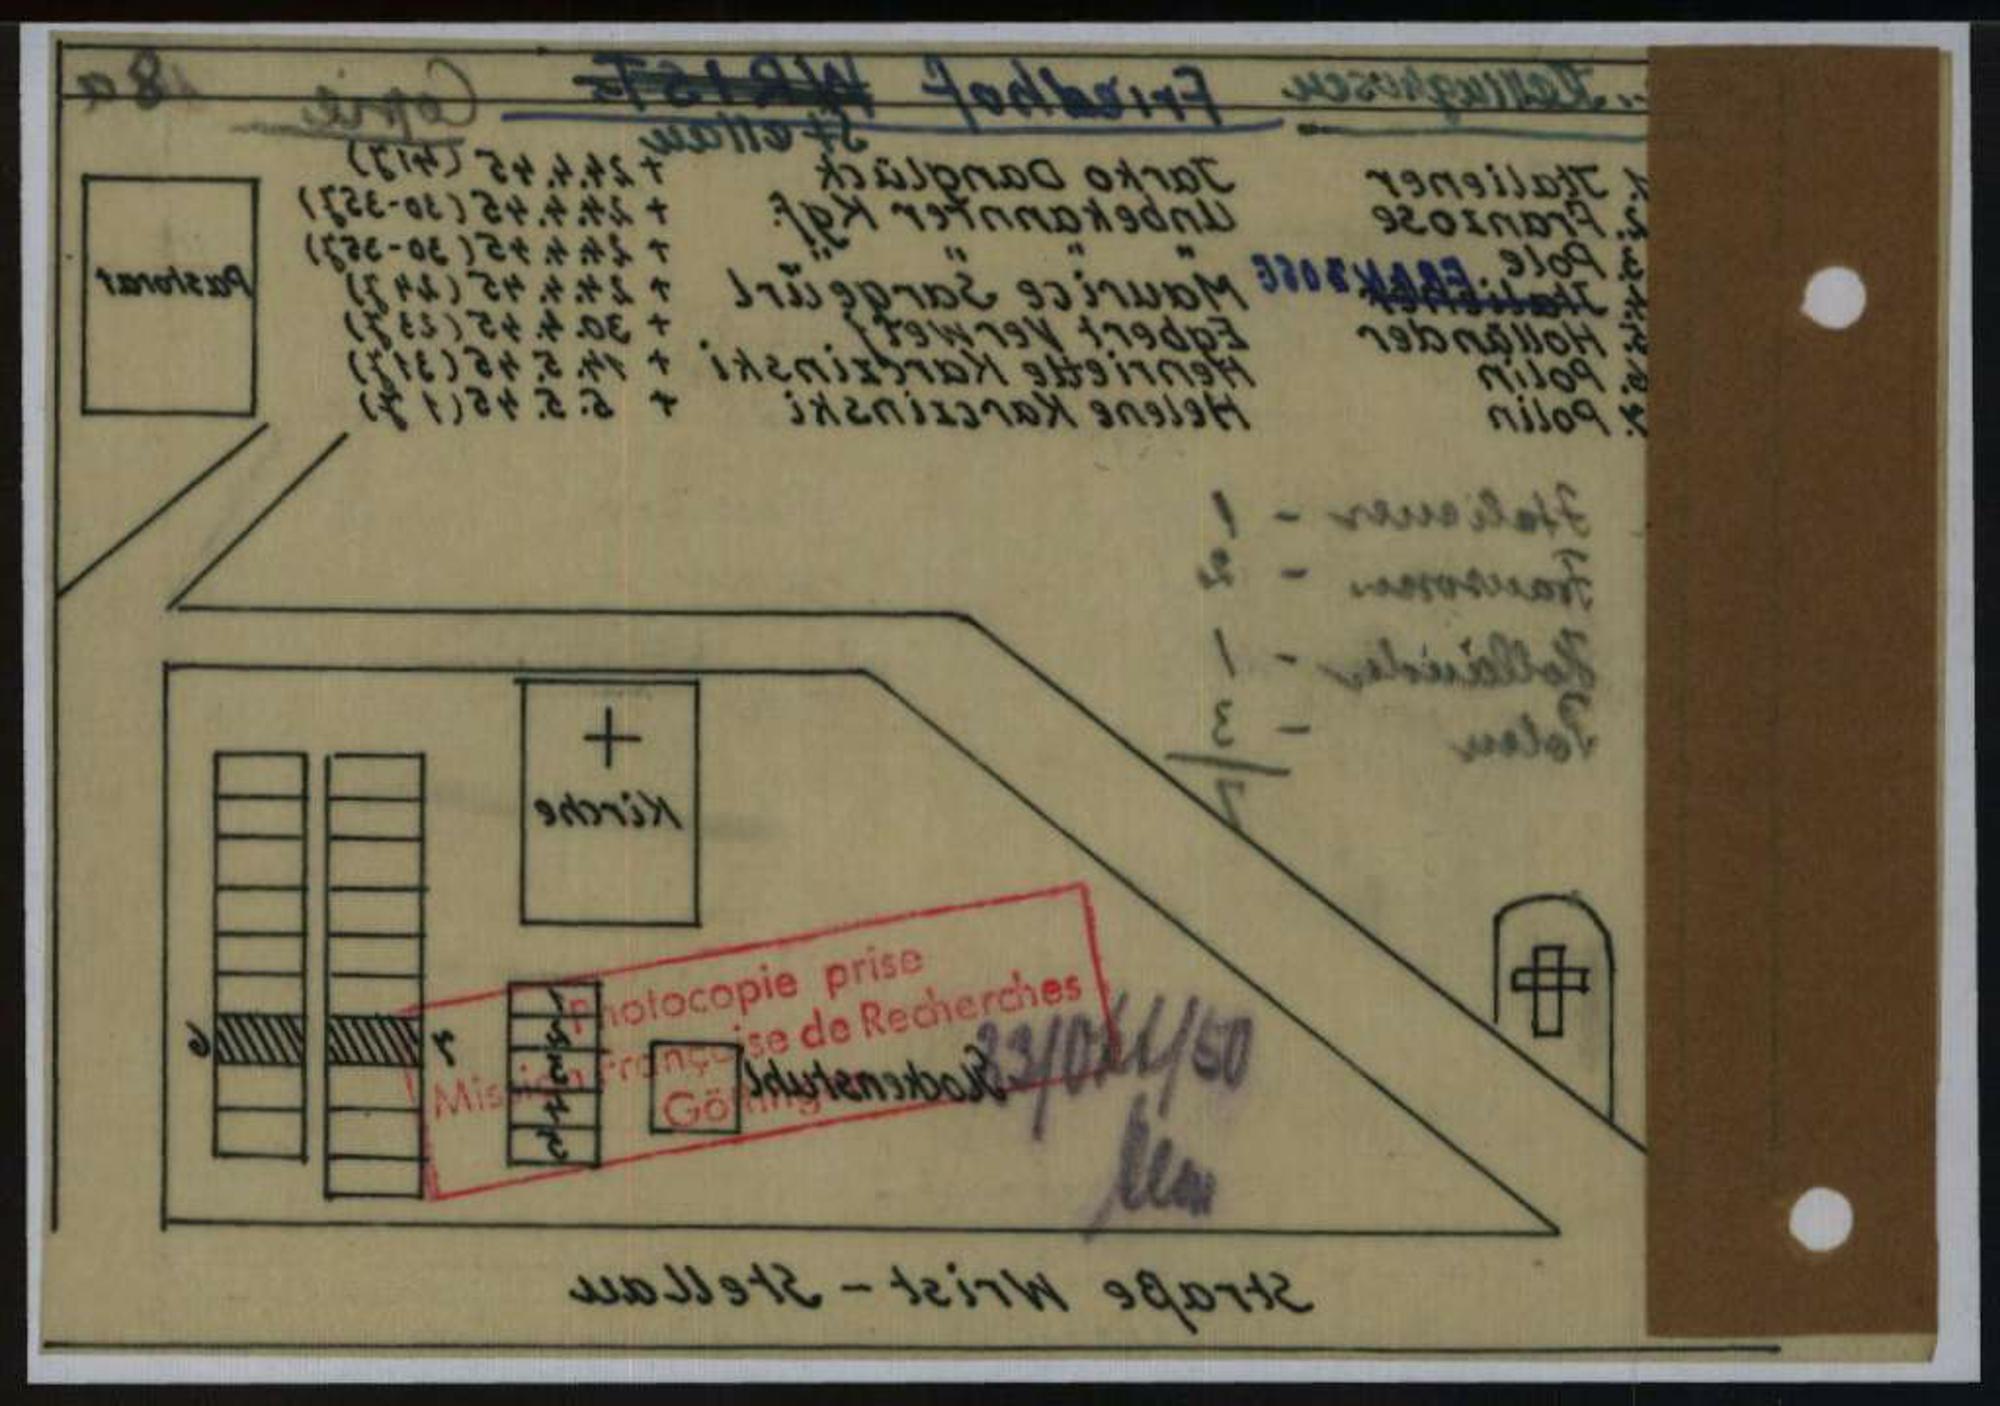 Kellinghusen Friedhof WRIST Copie 18a
Stellau
1. Italiener Jarko Danglück + 24.4.45 (41J)
2. Franzose Unbekannter Kgf. + 24.4.45 (30-35J)
3. Pole " " + 24.4.45 (30-35J)
4. Italiener FRANZOSE Maurice Sargeürl + 24.4.45 (24J)
5. Holländer Egbert Verwer + 30.4.45 (23J)
6. Polin Henriette Karczinski + 14.5.45 (31J)
7. Polin Helene Karczinski + 5.5.45 (1J)
Pastorat
Italiener - 1
Franzosen - 2
Holländer - 1
Polen - 3
7
Kirche
Photocopie prise
Mission Française de Recherches
Göttingen
1
2
3
4
5
6
7
Glockenstuhl
Straße Wrist - Stellau